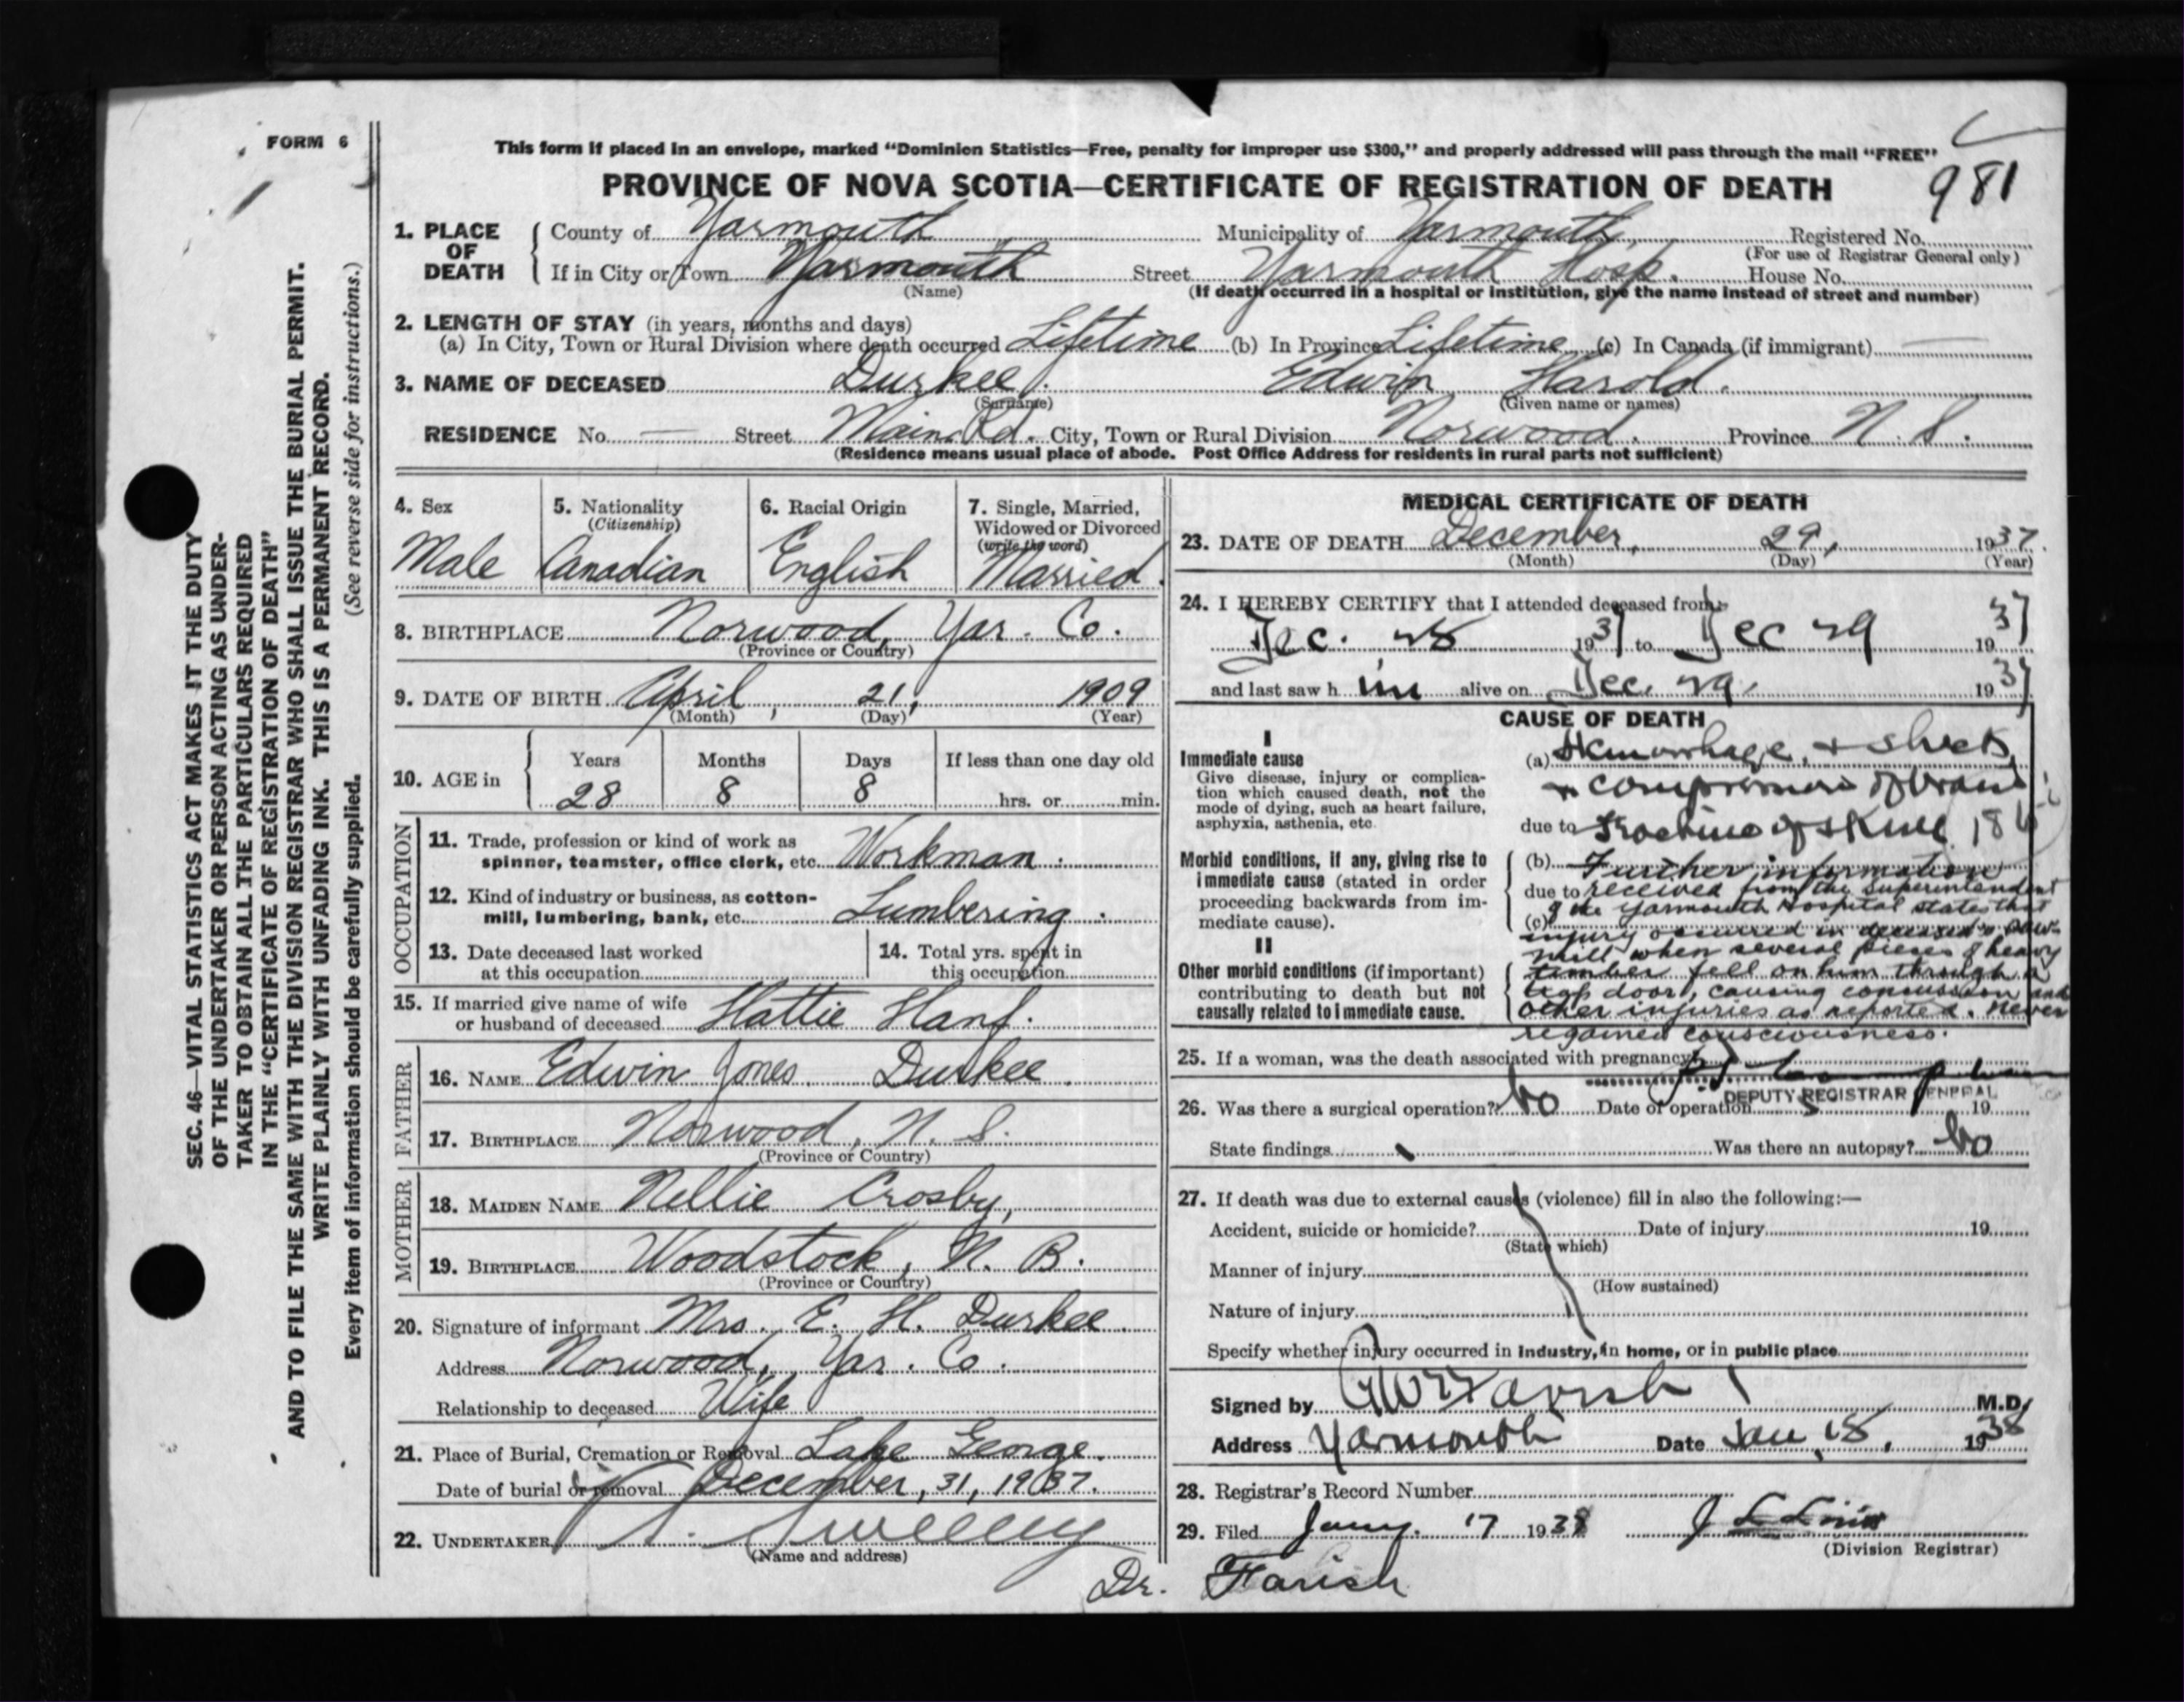 FORM 6
981
This form if placed in an envelope, marked "Dominion Statistics—Free, penalty for improper use $300," and properly addressed will pass through the mail "FREE"
PROVINCE OF NOVA SCOTIA—CERTIFICATE OF REGISTRATION OF DEATH
1. PLACE OF DEATH
County of Yarmouth Municipality of Yarmouth, Registered No.
(For use of Registrar General only)
If in City or Town Yarmouth Street Yarmouth Hosp. House No.
(Name) (If death occurred in a hospital or institution, give the name instead of street and number)
2. LENGTH OF STAY (in years, months and days)
(a) In City, Town or Rural Division where death occurred Lifetime (b) In Province Lifetime (c) In Canada (if immigrant) —
3. NAME OF DECEASED Durkee. Edwin Harold.
(Surname) (Given name or names)
RESIDENCE No. — Street Main Rd. City, Town or Rural Division Norwood. Province N. S.
(Residence means usual place of abode. Post Office Address for residents in rural parts not sufficient)
4. Sex
Male
5. Nationality
(Citizenship)
Canadian
6. Racial Origin
English
7. Single, Married, Widowed or Divorced
(write the word)
Married.
8. BIRTHPLACE Norwood, Yar. Co.
(Province or Country)
9. DATE OF BIRTH April, 21, 1909
(Month) (Day) (Year)
10. AGE in
Years Months Days If less than one day old
28 8 8 hrs. or min.
OCCUPATION
11. Trade, profession or kind of work as
spinner, teamster, office clerk, etc. Workman.
12. Kind of industry or business, as cotton-
mill, lumbering, bank, etc. Lumbering.
13. Date deceased last worked
at this occupation
14. Total yrs. spent in
this occupation
15. If married give name of wife
or husband of deceased Hattie Hanf.
FATHER
16. NAME Edwin Jones Durkee.
17. BIRTHPLACE Norwood, N. S.
(Province or Country)
MOTHER
18. MAIDEN NAME Nellie Crosby,
19. BIRTHPLACE Woodstock, N. B.
(Province or Country)
20. Signature of informant Mrs. E. H. Durkee.
Address Norwood, Yar. Co.
Relationship to deceased Wife
21. Place of Burial, Cremation or Removal Lake George.
Date of burial or removal December, 31, 1937.
22. UNDERTAKER Sweeny
(Name and address)
MEDICAL CERTIFICATE OF DEATH
23. DATE OF DEATH December, 29, 1937.
(Month) (Day) (Year)
24. I HEREBY CERTIFY that I attended deceased from:
Dec. 28 1937 to Dec 29 1937
and last saw him alive on Dec. 29, 1937
CAUSE OF DEATH
I
Immediate cause
Give disease, injury or complica-
tion which caused death, not the
mode of dying, such as heart failure,
asphyxia, asthenia, etc.
(a) Hemorrhage, + shock,
+ compression of brain
due to Fracture of skull
Morbid conditions, if any, giving rise to
immediate cause (stated in order
proceeding backwards from im-
mediate cause).
(b) Further information
due to received from the Superintendent
of the Yarmouth Hospital states that
(c) injury occurred in deceased's saw-
mill when several pieces of heavy
II
Other morbid conditions (if important)
contributing to death but not
causally related to immediate cause.
timber fell on him through a
trap door, causing concussion and
other injuries as reported. Never
regained consciousness.
25. If a woman, was the death associated with pregnancy?
DEPUTY REGISTRAR GENERAL
26. Was there a surgical operation? No Date of operation 19
State findings Was there an autopsy? No
27. If death was due to external causes (violence) fill in also the following:—
Accident, suicide or homicide? Date of injury 19
(State which)
Manner of injury
(How sustained)
Nature of injury
Specify whether injury occurred in industry, in home, or in public place
Signed by Farish M.D.
Address Yarmouth Date Jan 18, 1938
28. Registrar's Record Number
29. Filed Jany. 17 1938
(Division Registrar)
Dr. Farish
SEC. 46—VITAL STATISTICS ACT MAKES IT THE DUTY
OF THE UNDERTAKER OR PERSON ACTING AS UNDER-
TAKER TO OBTAIN ALL THE PARTICULARS REQUIRED
IN THE "CERTIFICATE OF REGISTRATION OF DEATH"
AND TO FILE THE SAME WITH THE DIVISION REGISTRAR WHO SHALL ISSUE THE BURIAL PERMIT.
WRITE PLAINLY WITH UNFADING INK. THIS IS A PERMANENT RECORD.
Every item of information should be carefully supplied. (See reverse side for instructions.)